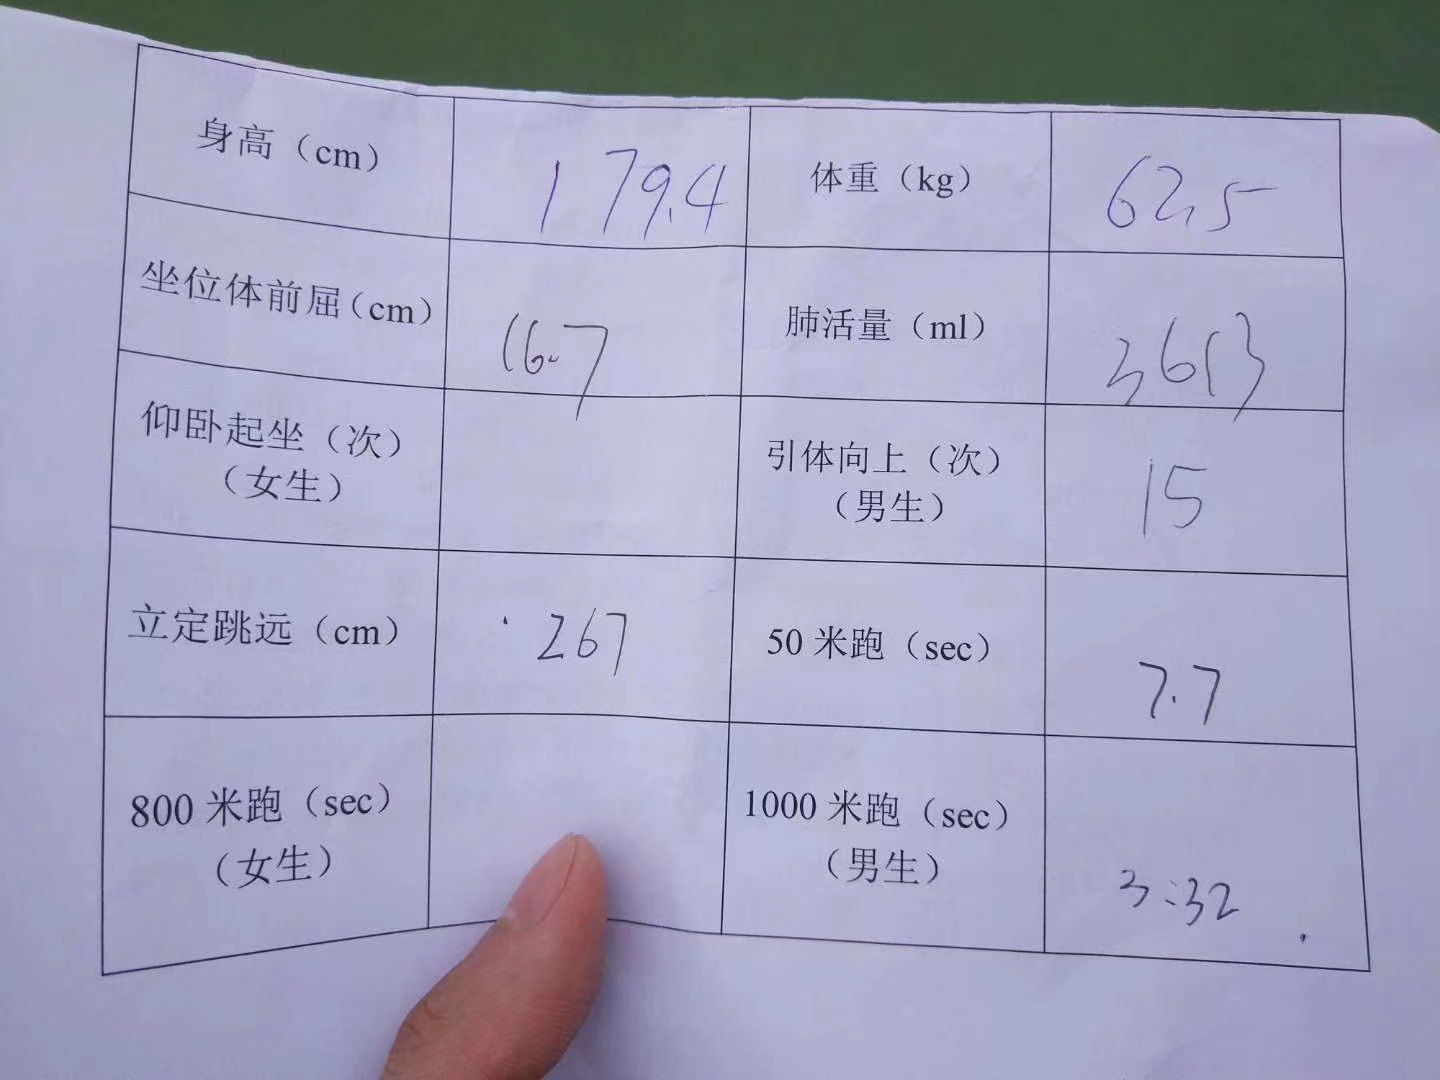 身高（cm） 179.4 体重（kg） 62.5
坐位体前屈（cm） 16.7 肺活量（ml） 3613
仰卧起坐（次） 引体向上（次） 15
（女生） （男生）
立定跳远（cm） 267 50 米跑（sec） 7.7
800 米跑（sec） 1000 米跑（sec） 3:32
（女生） （男生）